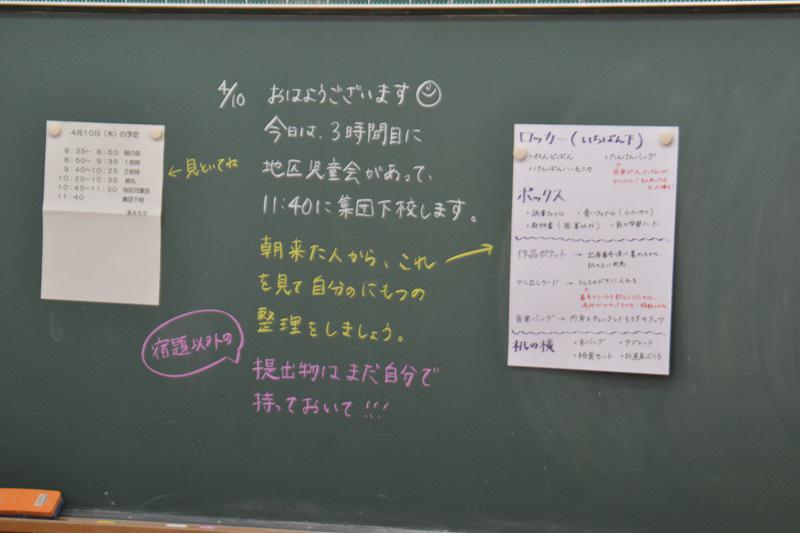 4/10 おはようございます
今日は、3時間目に
地区児童会があって、
11:40に集団下校します。
朝来た人から、これ
を見て自分のにもつの
整理をしましょう。
宿題以外の
提出物はまだ自分で
持っておいて!!!
←見といてね
4月10日(木)の予定
8:35~ 8:50 朝の会
8:50~ 9:35 1校時
9:40~10:25 2校時
10:25~10:35
10:45~11:30 地区児童会
11:40 集団下校
ロッカー(いちばん下)
・たんけんバッグ
・けんばんハーモニカ
ボックス
・読書ファイル ・青いファイル
・教科書 ・自主学習ノート
作品ポケット →
音楽バッグ → 中身をチェックして
机の横
・本バッグ ・タブレット
・給食セット